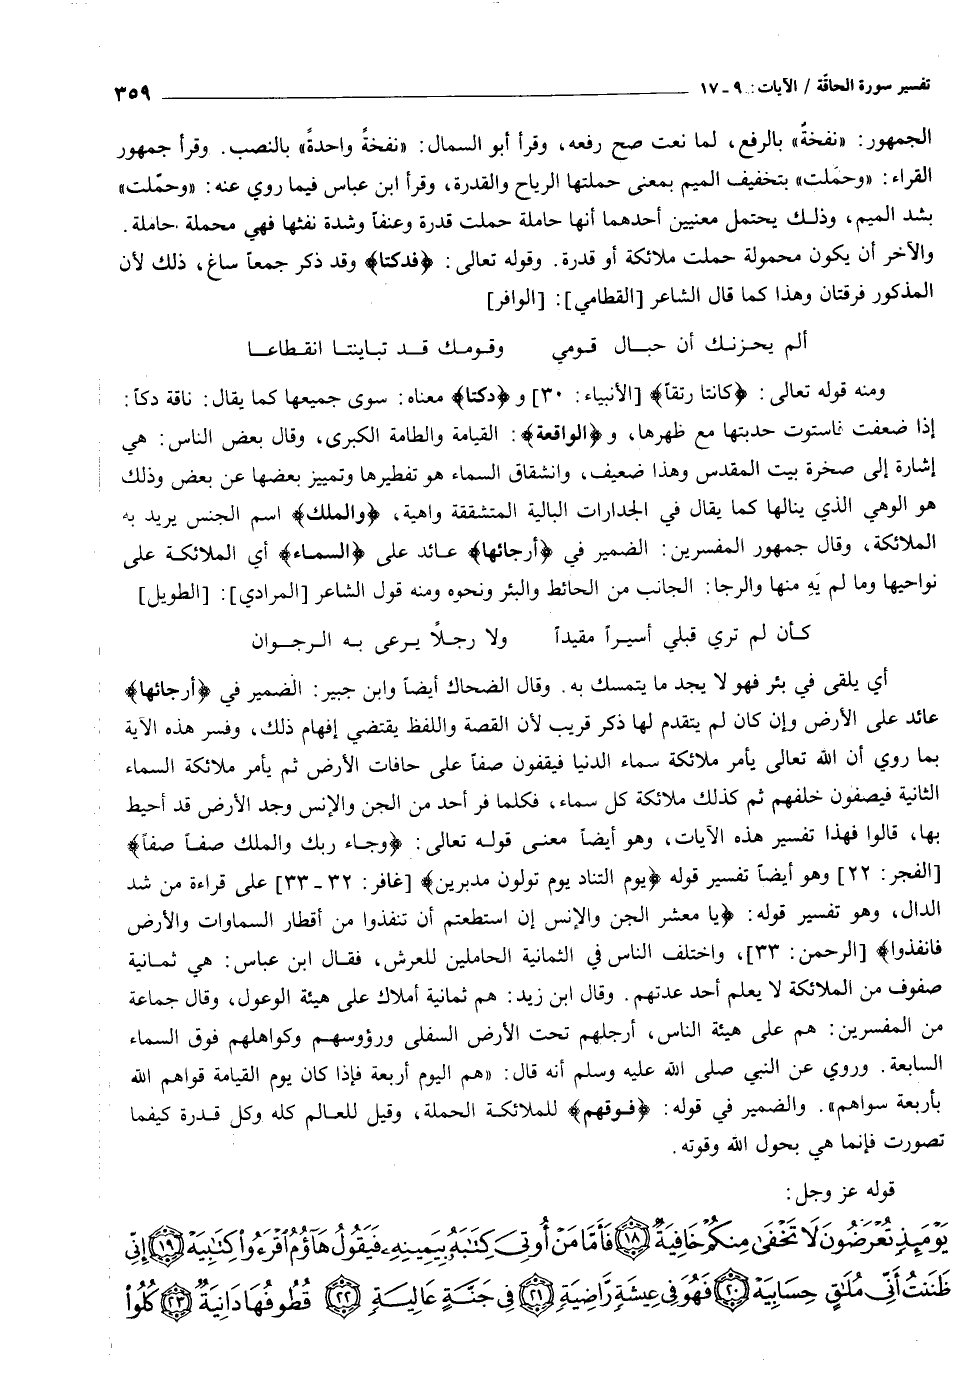 تفسير سورة الحاقّة / الآيات: ٩ - ١٧ ٣٥٩
الجمهور: «نفخةٌ» بالرفع، لما نعت صح رفعه، وقرأ أبو السمال: «نفخةً واحدةً» بالنصب. وقرأ جمهور
القراء: «وحمَلت» بتخفيف الميم بمعنى حملتها الرياح والقدرة، وقرأ ابن عباس فيما روي عنه: «وحمّلت»
بشد الميم، وذلك يحتمل معنيين أحدهما أنها حاملة حملت قدرة وعنفاً وشدة نفثها فهي محملة حاملة.
والآخر أن يكون محمولة حملت ملائكة أو قدرة. وقوله تعالى: ﴿فدكتا﴾ وقد ذكر جمعاً ساغ، ذلك لأن
المذكور فرقتان وهذا كما قال الشاعر [القطامي]: [الوافر]
ألم يحزنك أن حبال قومي وقومك قد تباينتا انقطاعا
ومنه قوله تعالى: ﴿كانتا رتقاً﴾ [الأنبياء: ٣٠] و﴿دكتا﴾ معناه: سوى جميعها كما يقال: ناقة دكاً:
إذا ضعفت فاستوت حدبتها مع ظهرها، و﴿الواقعة﴾: القيامة والطامة الكبرى، وقال بعض الناس: هي
إشارة إلى صخرة بيت المقدس وهذا ضعيف، وانشقاق السماء هو تفطيرها وتمييز بعضها عن بعض وذلك
هو الوهي الذي ينالها كما يقال في الجدارات البالية المتشققة واهية، ﴿والملك﴾ اسم الجنس يريد به
الملائكة، وقال جمهور المفسرين: الضمير في ﴿أرجائها﴾ عائد على ﴿السماء﴾ أي الملائكة على
نواحيها وما لم يَهِ منها والرجا: الجانب من الحائط والبئر ونحوه ومنه قول الشاعر [المرادي]: [الطويل]
كأن لم تري قبلي أسيراً مقيداً ولا رجلاً يرعى به الرجوان
أي يلقى في بئر فهو لا يجد ما يتمسك به. وقال الضحاك أيضاً وابن جبير: الضمير في ﴿أرجائها﴾
عائد على الأرض وإن كان لم يتقدم لها ذكر قريب لأن القصة واللفظ يقتضي إفهام ذلك، وفسر هذه الآية
بما روي أن الله تعالى يأمر ملائكة سماء الدنيا فيقفون صفاً على حافات الأرض ثم يأمر ملائكة السماء
الثانية فيصفون خلفهم ثم كذلك ملائكة كل سماء، فكلما فر أحد من الجن والإنس وجد الأرض قد أحيط
بها، قالوا فهذا تفسير هذه الآيات، وهو أيضاً معنى قوله تعالى: ﴿وجاء ربك والملك صفاً صفاً﴾
[الفجر: ٢٢] وهو أيضاً تفسير قوله ﴿يوم التناد يوم تولون مدبرين﴾ [غافر: ٣٢ - ٣٣] على قراءة من شد
الدال، وهو تفسير قوله: ﴿يا معشر الجن والإنس إن استطعتم أن تنفذوا من أقطار السماوات والأرض
فانفذوا﴾ [الرحمن: ٣٣]، واختلف الناس في الثمانية الحاملين للعرش، فقال ابن عباس: هي ثمانية
صفوف من الملائكة لا يعلم أحد عدتهم. وقال ابن زيد: هم ثمانية أملاك على هيئة الوعول، وقال جماعة
من المفسرين: هم على هيئة الناس، أرجلهم تحت الأرض السفلى ورؤوسهم وكواهلهم فوق السماء
السابعة. وروي عن النبي صلى الله عليه وسلم أنه قال: «هم اليوم أربعة فإذا كان يوم القيامة قواهم الله
بأربعة سواهم». والضمير في قوله: ﴿فوقهم﴾ للملائكة الحملة، وقيل للعالم كله وكل قدرة كيفما
تصورت فإنما هي بحول الله وقوته.
قوله عز وجل:
يَوْمَئِذٍ تُعْرَضُونَ لَا تَخْفَىٰ مِنكُمْ خَافِيَةٌ ﴿١٨﴾ فَأَمَّا مَنْ أُوتِيَ كِتَابَهُ بِيَمِينِهِ فَيَقُولُ هَاؤُمُ اقْرَءُوا كِتَابِيَهْ ﴿١٩﴾ إِنِّي
ظَنَنتُ أَنِّي مُلَاقٍ حِسَابِيَهْ ﴿٢٠﴾ فَهُوَ فِي عِيشَةٍ رَّاضِيَةٍ ﴿٢١﴾ فِي جَنَّةٍ عَالِيَةٍ ﴿٢٢﴾ قُطُوفُهَا دَانِيَةٌ ﴿٢٣﴾ كُلُوا